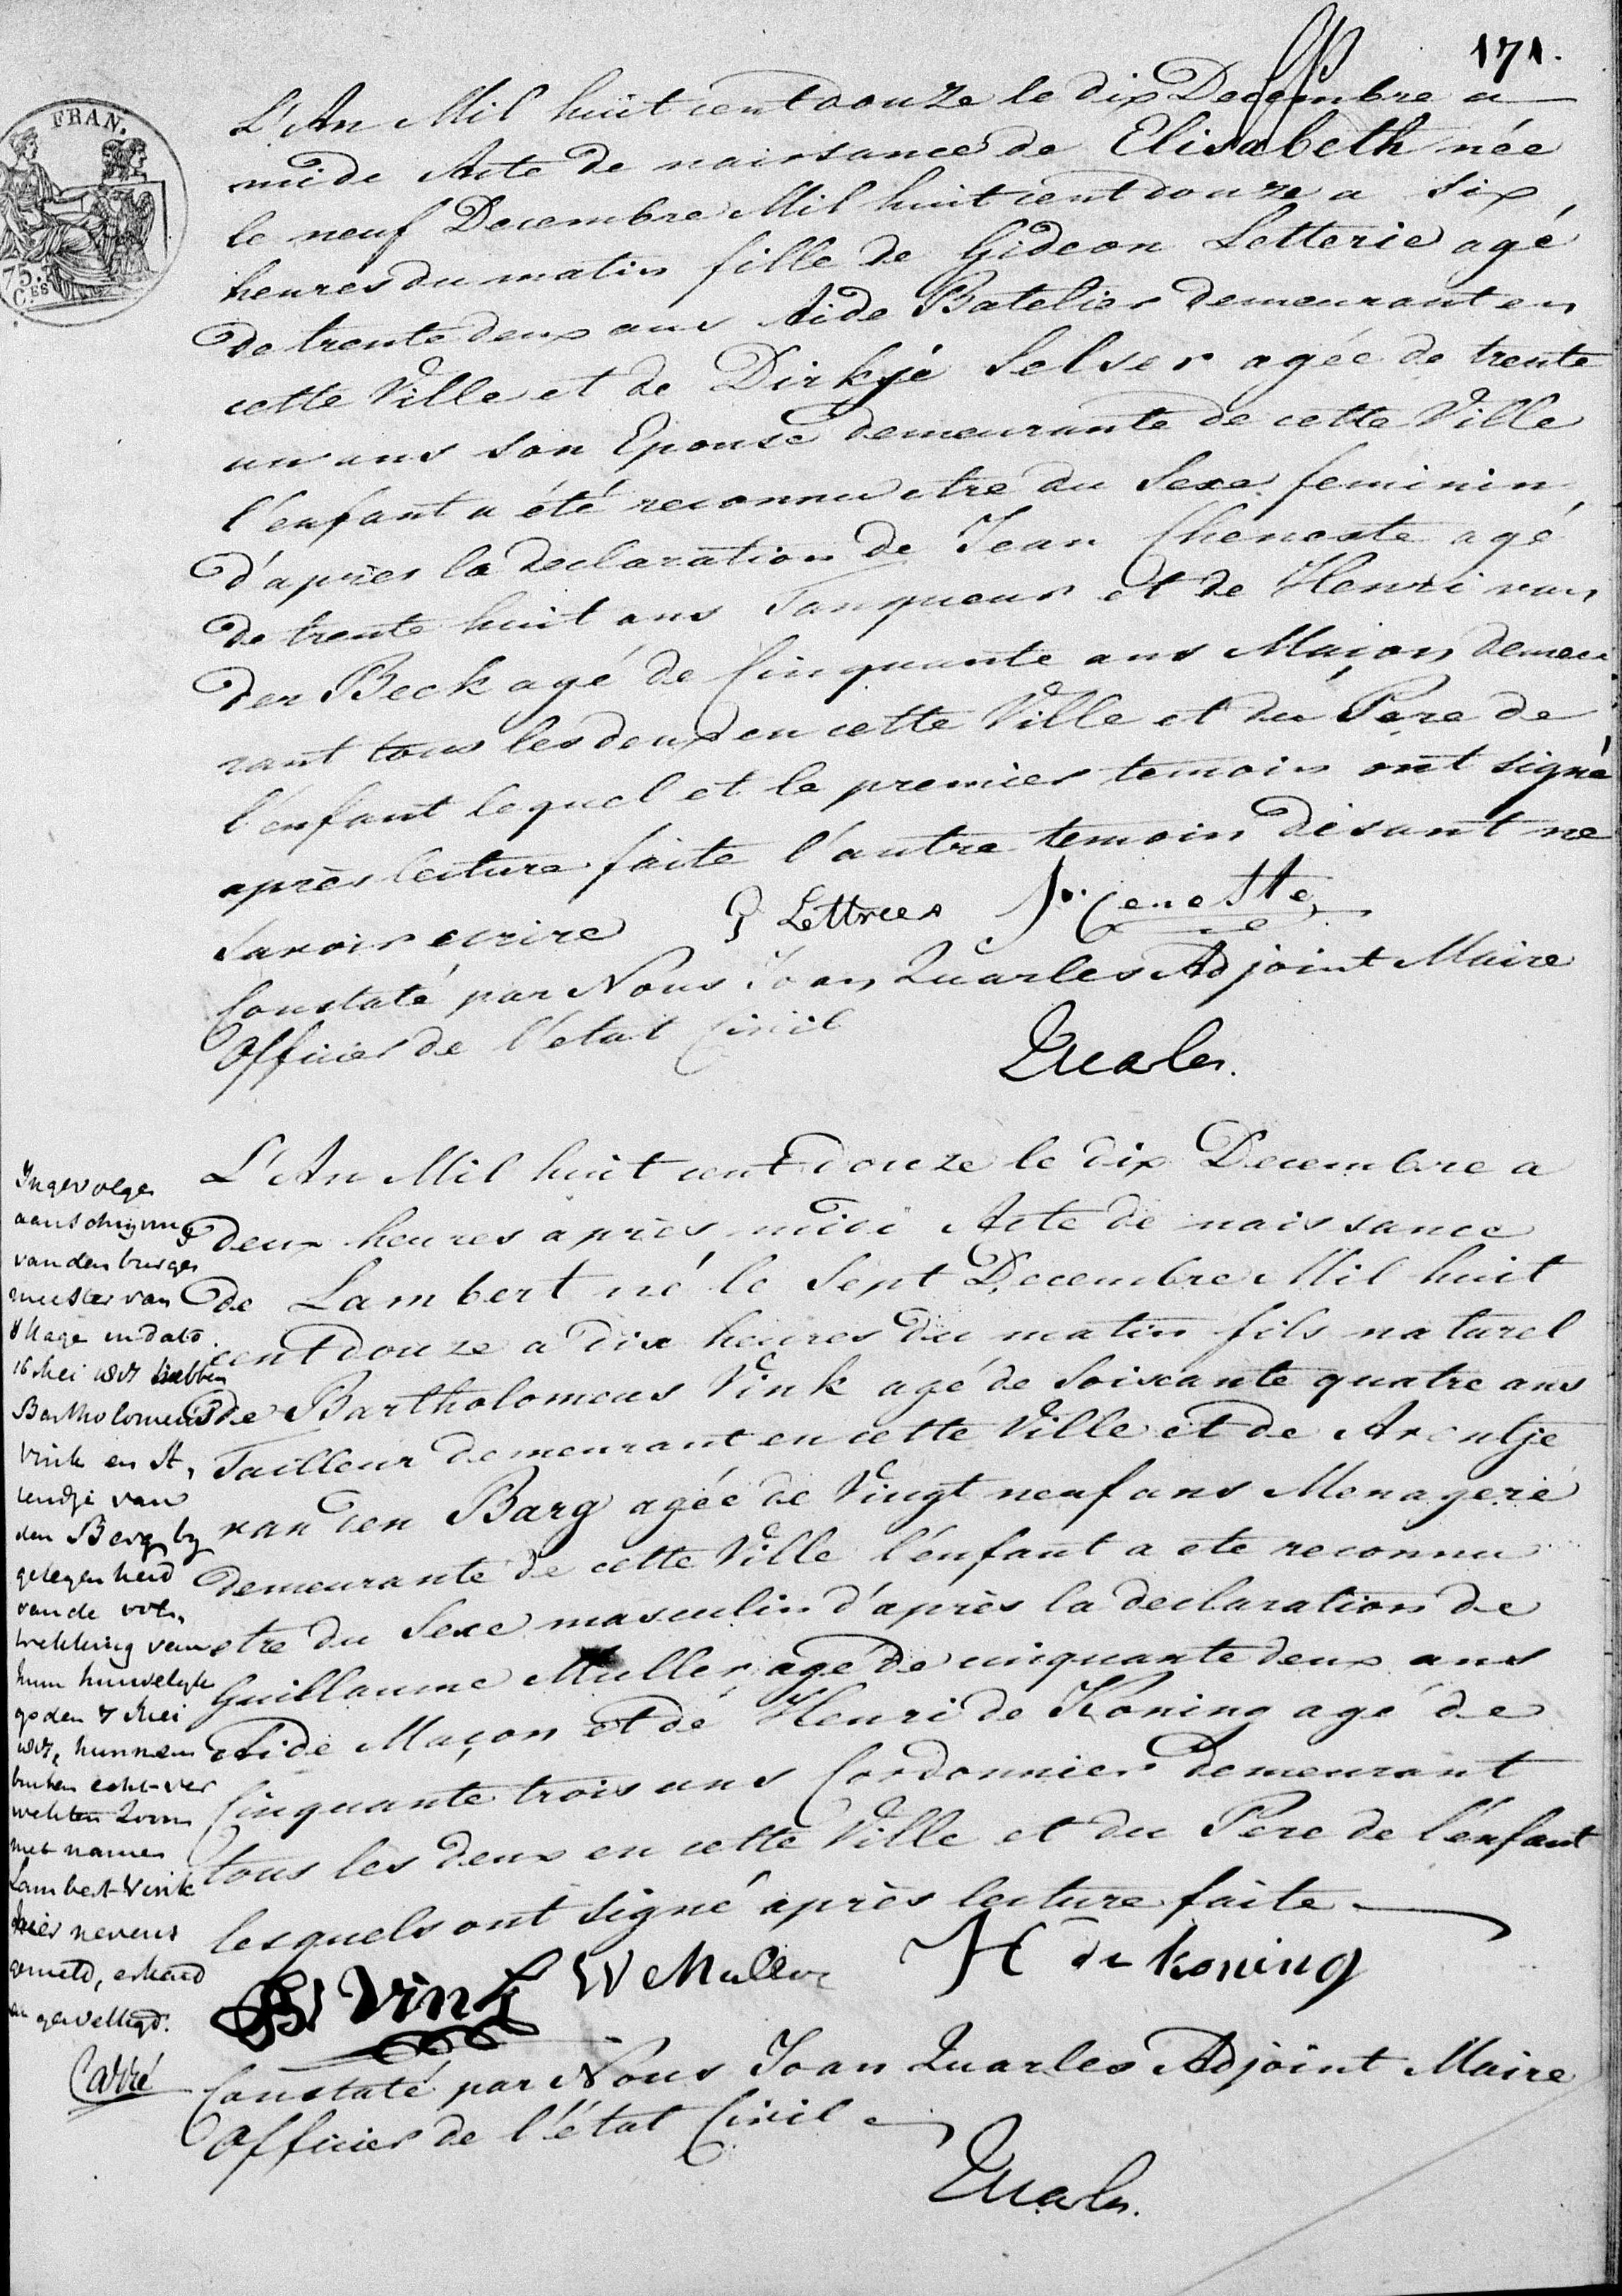 171.
FRAN.
75.
C.ES
L'An Mil huit cent douze le dix Decembre a
midi Acte de naissance de Elisabeth née
le neuf Decembre Mil huit cent douze a six
heures du matin fille de Gideon Letterie agé
de trente deux ans Aide Batelier demeurant en
cette Ville et de Dirkje Selser agée de trente
un ans son Epouse demeurante de cette Ville
l'enfant a été reconnu etre du Sexe feminin
d'après la declaration de Jean Cheneste agé
de trente huit ans Tanqueur et de Henri van
der Beek agé de Cinquante ans Maçon demeu
rant tous les deux en cette Ville et du Pere de
l'enfant lequel et le premier temoin ont signé
après lecture faite l'autre temoin disant ne
savoir ecrire G Lettrees J. Cenette
Constaté par Nous Joan Quarles Adjoint Maire
Officier de l'etat Civil
Quarles.
L'An Mil huit cent douze le dix Decembre a
deux heures après midi Acte de naissance
de Lambert né le Sept Decembre Mil huit
cent douze a dix heures du matin fils naturel
de Bartholomeus Vink agé de Soixante quatre ans
Tailleur demeurant en cette Ville et de Arentje
van den Barg agée de Vingt neuf ans Menagere
demeurante de cette Ville l'enfant a ete reconnu
etre du Sexe masculin d'après la declaration de
Guillaume Muller, agé de cinquante deux ans
Aide Maçon et de Henri de Koning agé de
Cinquante trois ans Cordonnier demeurant
tous les deux en cette Ville et du Pere de l'enfant
lesquels ont signé après lecture faite
B Vink W Muller H de koning
Constaté par Nous Joan Quarles Adjoint Maire
Officier de l'état Civil
Quarles.
Ingevolge
aanschryving
van den burge
meester van
s Hage in dato
16 Mei hebben
Bartholomeus
Vink en A,
rendje van
den Berg by
gelegenheid
van de vol,
trekking van
hun huwelyk
op den 7 Mei
hunnen
buiten echt ver
wekten Zoon
met name
Lambert Vink
hier nevens
gemeld, erkend
en gewettigd.
Carré